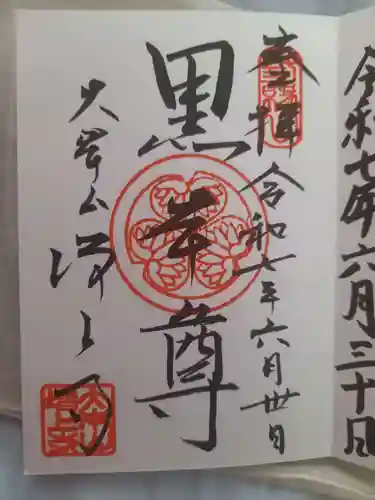 令和七年六月三十日
奉拝
令和七年六月卅日
黒本尊
大本山増上寺